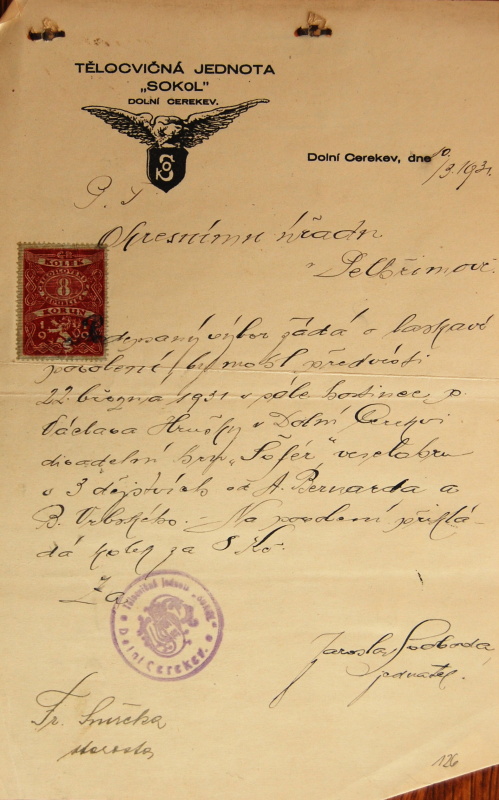 TĚLOCVIČNÁ JEDNOTA
„SOKOL"
DOLNÍ CEREKEV.
SOK
Dolní Cerekev, dne 10/3. 1931
P. T.
Okresnímu úřadu
v Pelhřimově.
KOLEK
8
KORUN
Podepsaný výbor žádá o laskavé
povolení, by mohl předvésti
22. března 1931 v sále hostince p.
Václava Hrušky v Dolní Cerekvi
divadelní hru „Šofér" veselohru
o 3 dějstvích od A. Bernarda a
B. Vrbského. Na povolení přiklá-
dá kolek za 8 Kč.
Za
Tělocvičná jednota „Sokol"
Dolní Cerekev.
Jaroslav Svoboda,
jednatel.
Fr.
starosta
126